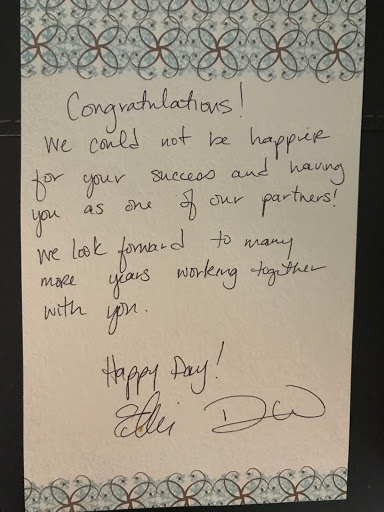 Congratulations!
We could not be happier
for your success and having
you as one of our partners!
We look forward to many
more years working together
with you.
Happy Day!